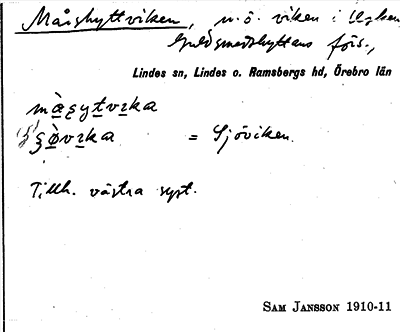 Måshyttviken, n.ö. viken i Usken
Guldsmedshyttans förs.,
Lindes sn, Lindes o. Ramsbergs hd, Örebro län
= Sjöviken.
Tillh. västra syst.
SAM JANSSON 1910-11